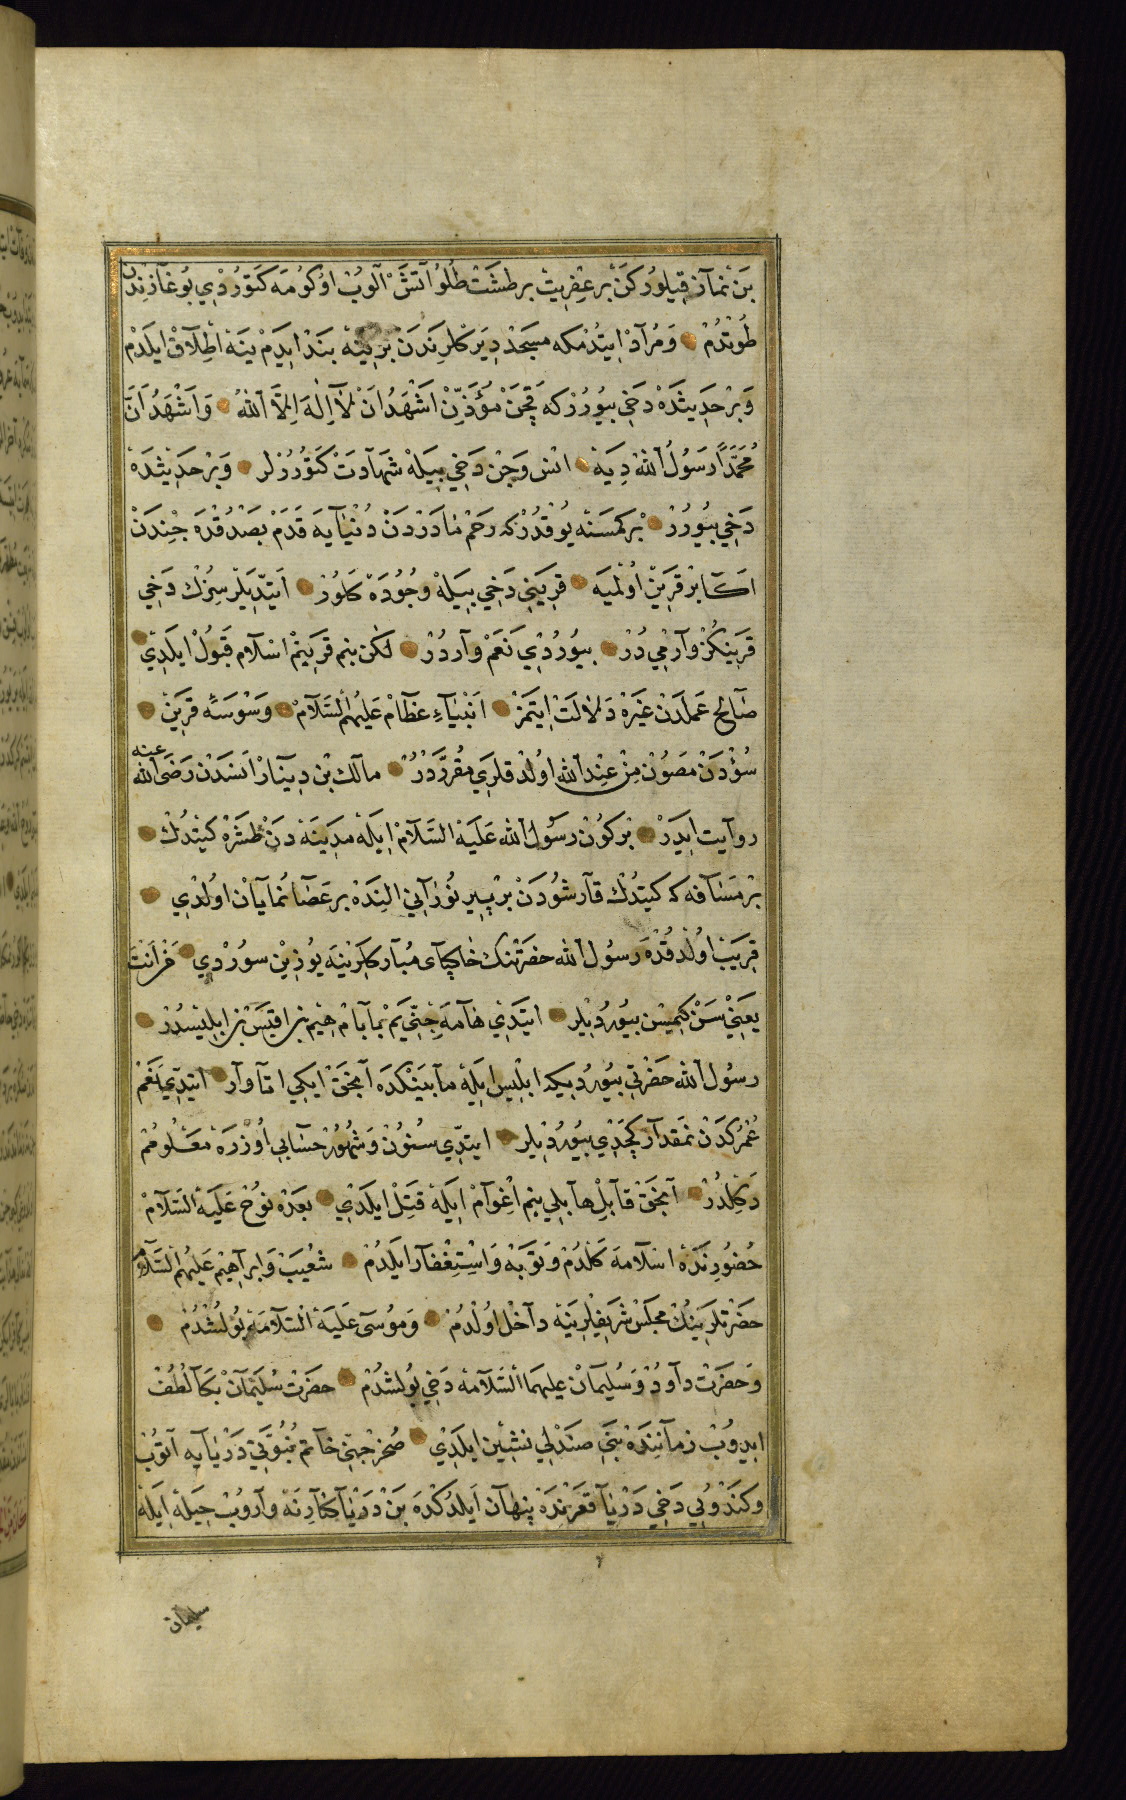 بن نماز قیلورکن بر عفریت بر طشت طلو آتش آلوب اوکومه کتوردی بوغازندن
طوتدم ومراد ایتدمکه مسجد دیرکلرندن برینه بند ایدم ینه اطلاق ایلدم
وبر حدیثده دخی بیوررکه قچن مؤذن اشهد ان لا اله الا الله واشهد ان
محمدا رسول الله دیه انس وجن دخی بیله شهادت کتوررلر وبر حدیثده
دخی بیورر بر کمسنه یوقدرکه رحم مادردن دنیایه قدم بصدقده جندن
اکا بر قرین اولمیه قرینی دخی بیله وجوده کلور ایتدیلر سزک دخی
قرینکز وارمی در بیوردی نعم واردر لکن بنم قرینم اسلام قبول ایلدی
صالح عملدن غیره دلالت ایتمز انبیاء عظام علیهم السلام وسوسه قرین
سؤدن مصون من عند الله اولدقلری مقرردر مالک بن دینار انسدن رضی الله عنه
روایت ایدر بر کون رسول الله علیه السلام ایله مدینه دن طشره کیتدک
بر مسافه که کیتدک قارشودن بر پیر نورانی النده بر عصا نمایان اولدی
قریب اولدقده رسول الله حضرتنک خاکپای مبارکلرینه یوزین سوردی من انت
یعنی سن کیمسن بیوردیلر ایتدی هامه جنی یم بابام هیم بن اقیس بن ابلیسدر
رسول الله حضرتی بیوردیکه ابلیس ایله مابینکده آنجق ایکی اتا وار ایتدی نعم
عمرکدن نمقدار کچدی بیوردیلر ایتدی سنون وشهور حسابی اوزره معلومم
دکلدر آنجق قابل هابلی بنم اغوام ایله قتل ایلدی بعده نوح علیه السلام
حضورنده اسلامه کلدم وتوبه واستغفار ایلدم شعیب وابراهیم علیهم السلام
حضرتلرینک مجلس شریفلرینه داخل اولدم وموسی علیه السلامه بولشدم
وحضرت داود وسلیمان علیهما السلامه دخی بولشدم حضرت سلیمان بکا لطف
ایدوب زماننده بنی صندلی نشین ایلدی صخر جنی خاتم نبوتی دریایه آتوب
وکندویی دخی دریا قعرنده پنهان ایلدکده بن دریا کنارنه واروب حیله ایله
سلیمان